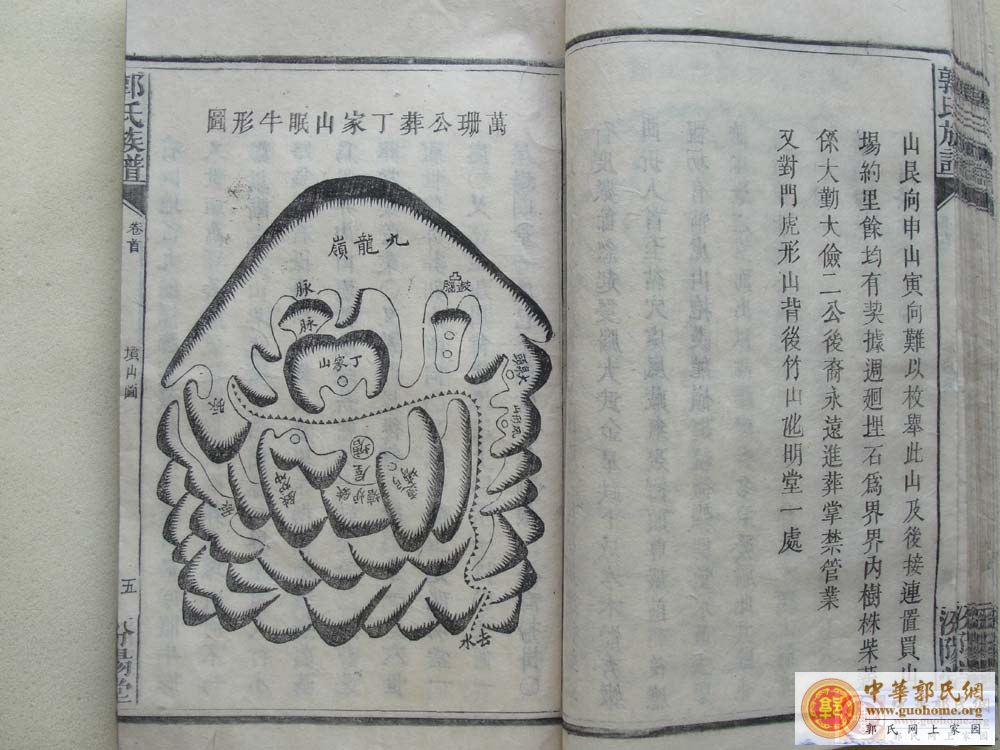 郭氏族譜
山艮向申山寅向難以枚舉此山及後接連置買山
場約里餘均有契據週廻埋石爲界界內樹株柴
係大勤大儉二公後裔永遠進葬掌禁管業
又對門虎形山背後竹山屹明堂一處
萬珊公葬丁家山眠牛形圖
九龍嶺
脉
脉
丁家山
脉
屋
去水
郭氏族譜
卷首
墳山圖
五
汾陽堂
中華郭氏網
www.guohome.org
郭氏網上家園